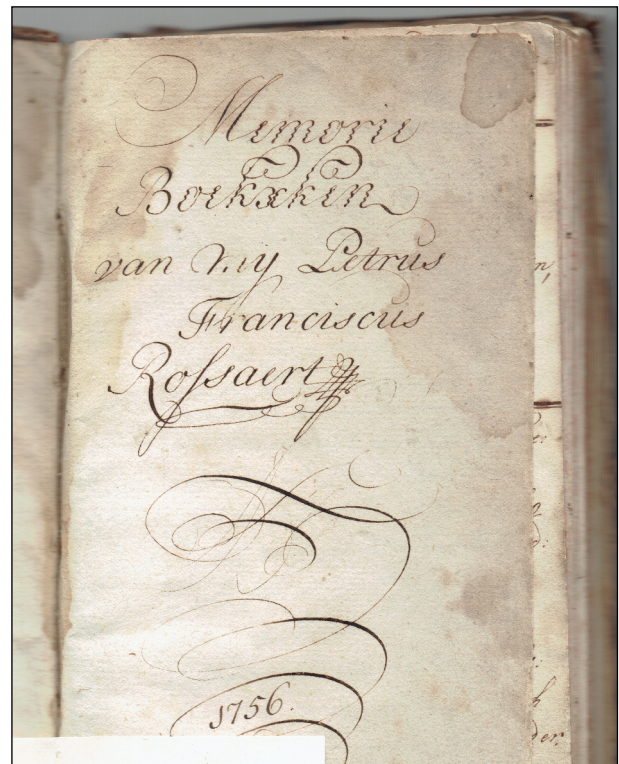 Memorie
Boekxken
van mij Petrus
Franciscus
Rossaert
1756.